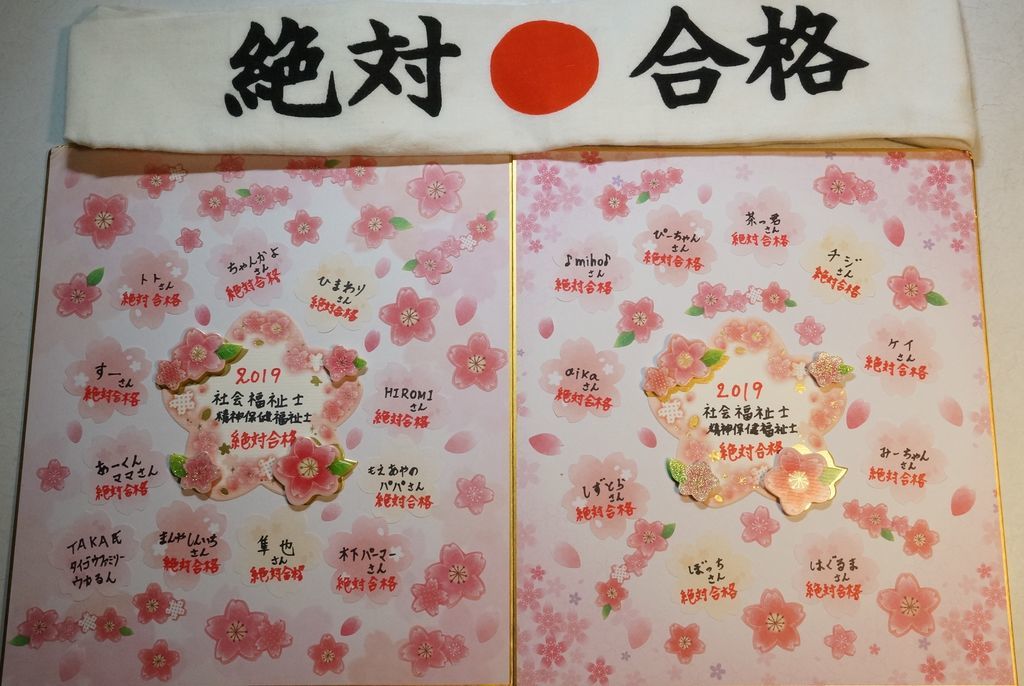 絶対 合格
トト
さん
絶対合格
ちゃんかよ
さん
絶対合格
ひまわり
さん
絶対合格
すー
さん
絶対合格
2019
社会福祉士
精神保健福祉士
絶対合格
HIROMI
さん
絶対合格
あーくん
ママさん
絶対合格
もえあやの
パパさん
絶対合格
TAKA氏
タイゾウファミリー
ウカるん
まんやしんいち
さん
絶対合格
隼也
さん
絶対合格
木下パーマー
さん
絶対合格
♪miho♪
さん
絶対合格
ぴーちゃん
さん
絶対合格
茶っ君
さん
絶対合格
チジ
さん
絶対合格
aika
さん
絶対合格
2019
社会福祉士
精神保健福祉士
絶対合格
ケイ
さん
絶対合格
しずとら
さん
絶対合格
みーちゃん
さん
絶対合格
ぼっち
さん
絶対合格
はぐるま
さん
絶対合格